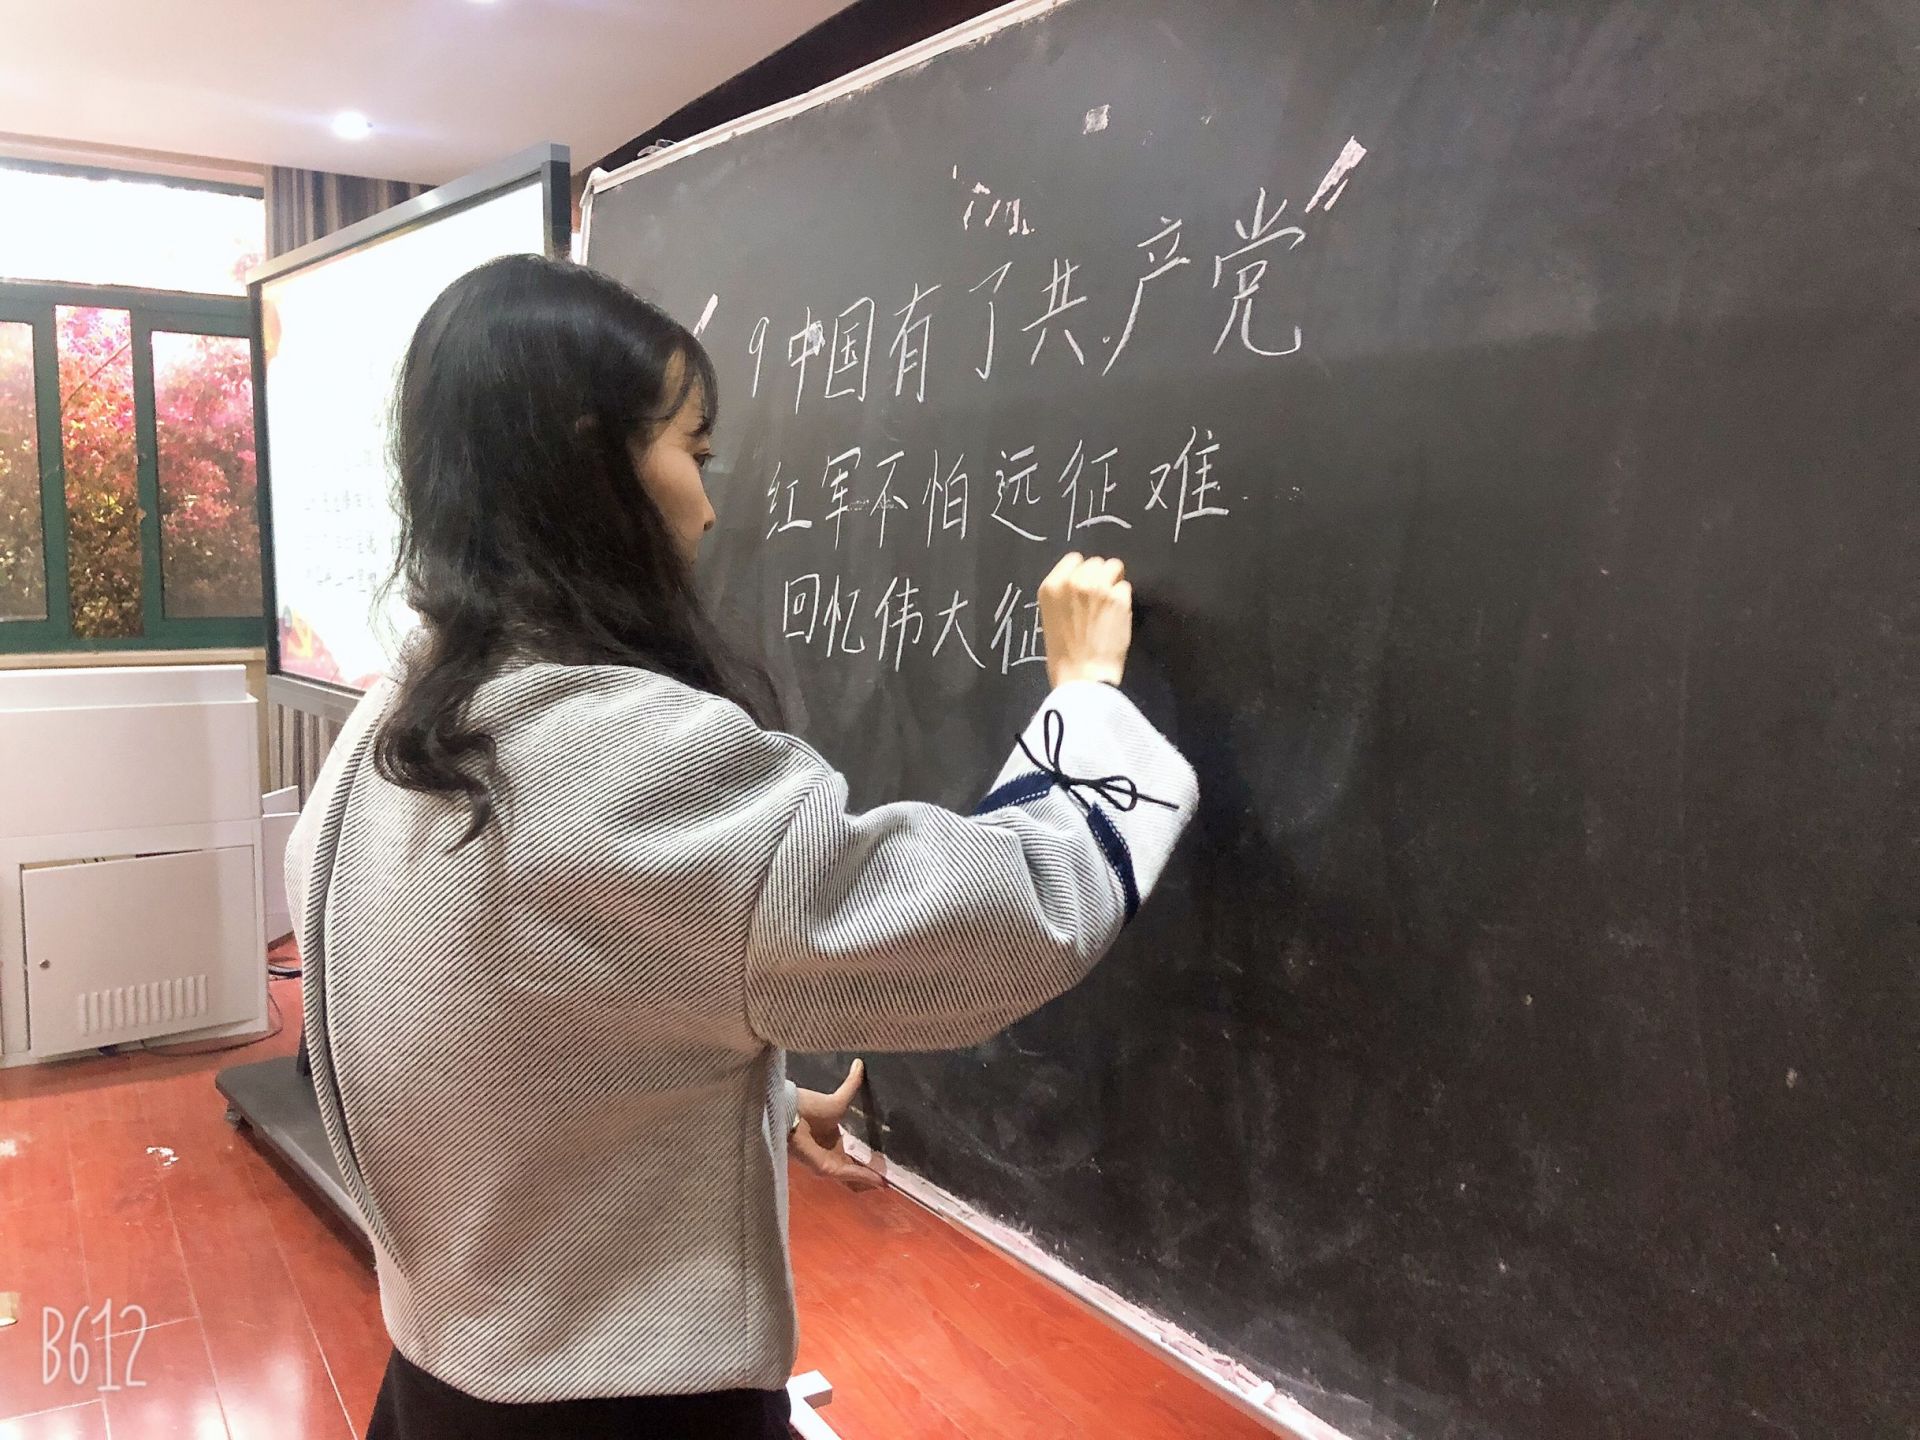 9 中国有了共产党
红军不怕远征难
回忆伟大征
B612